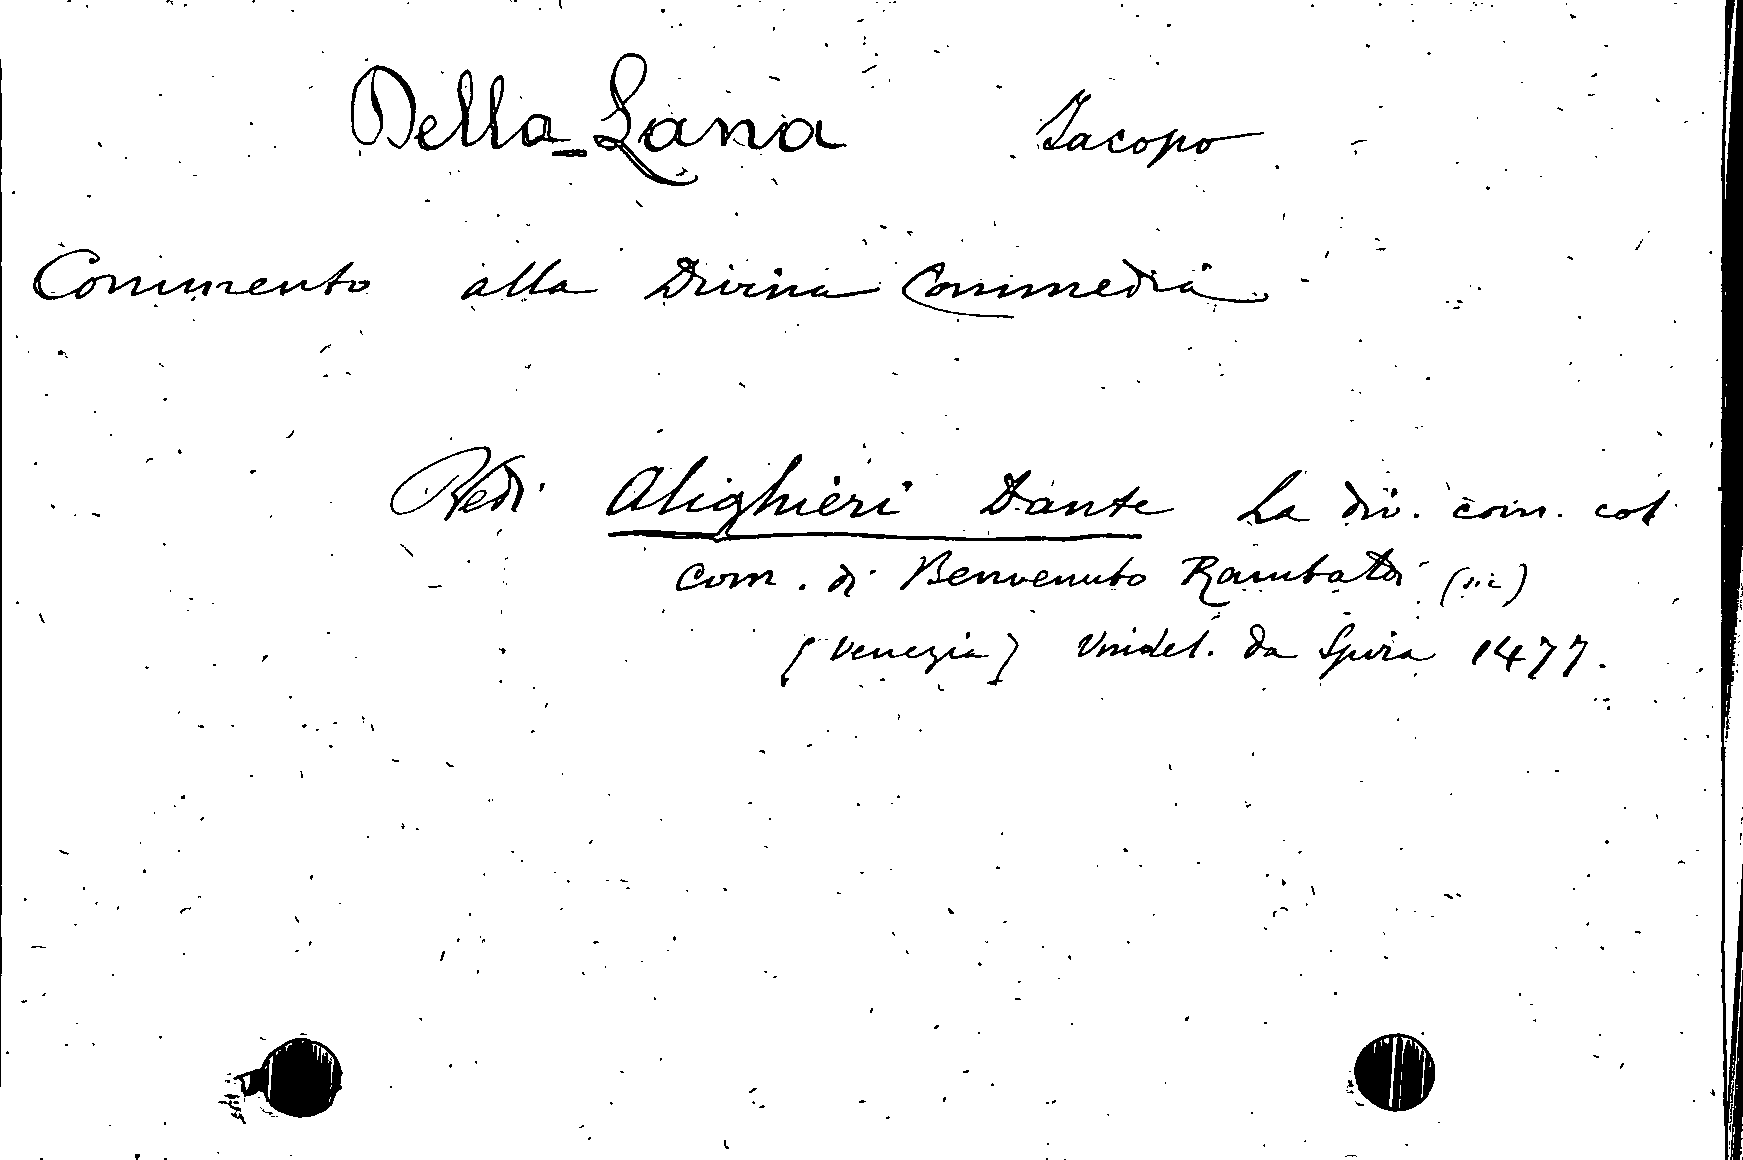 Della-Lana Jacopo
Commento alla Divina Commedia
Vedi Alighieri Dante La div. com. col
com. di Benvenuto Rambaldi (sic)
[Venezia] Vindel. da Spira 1477.